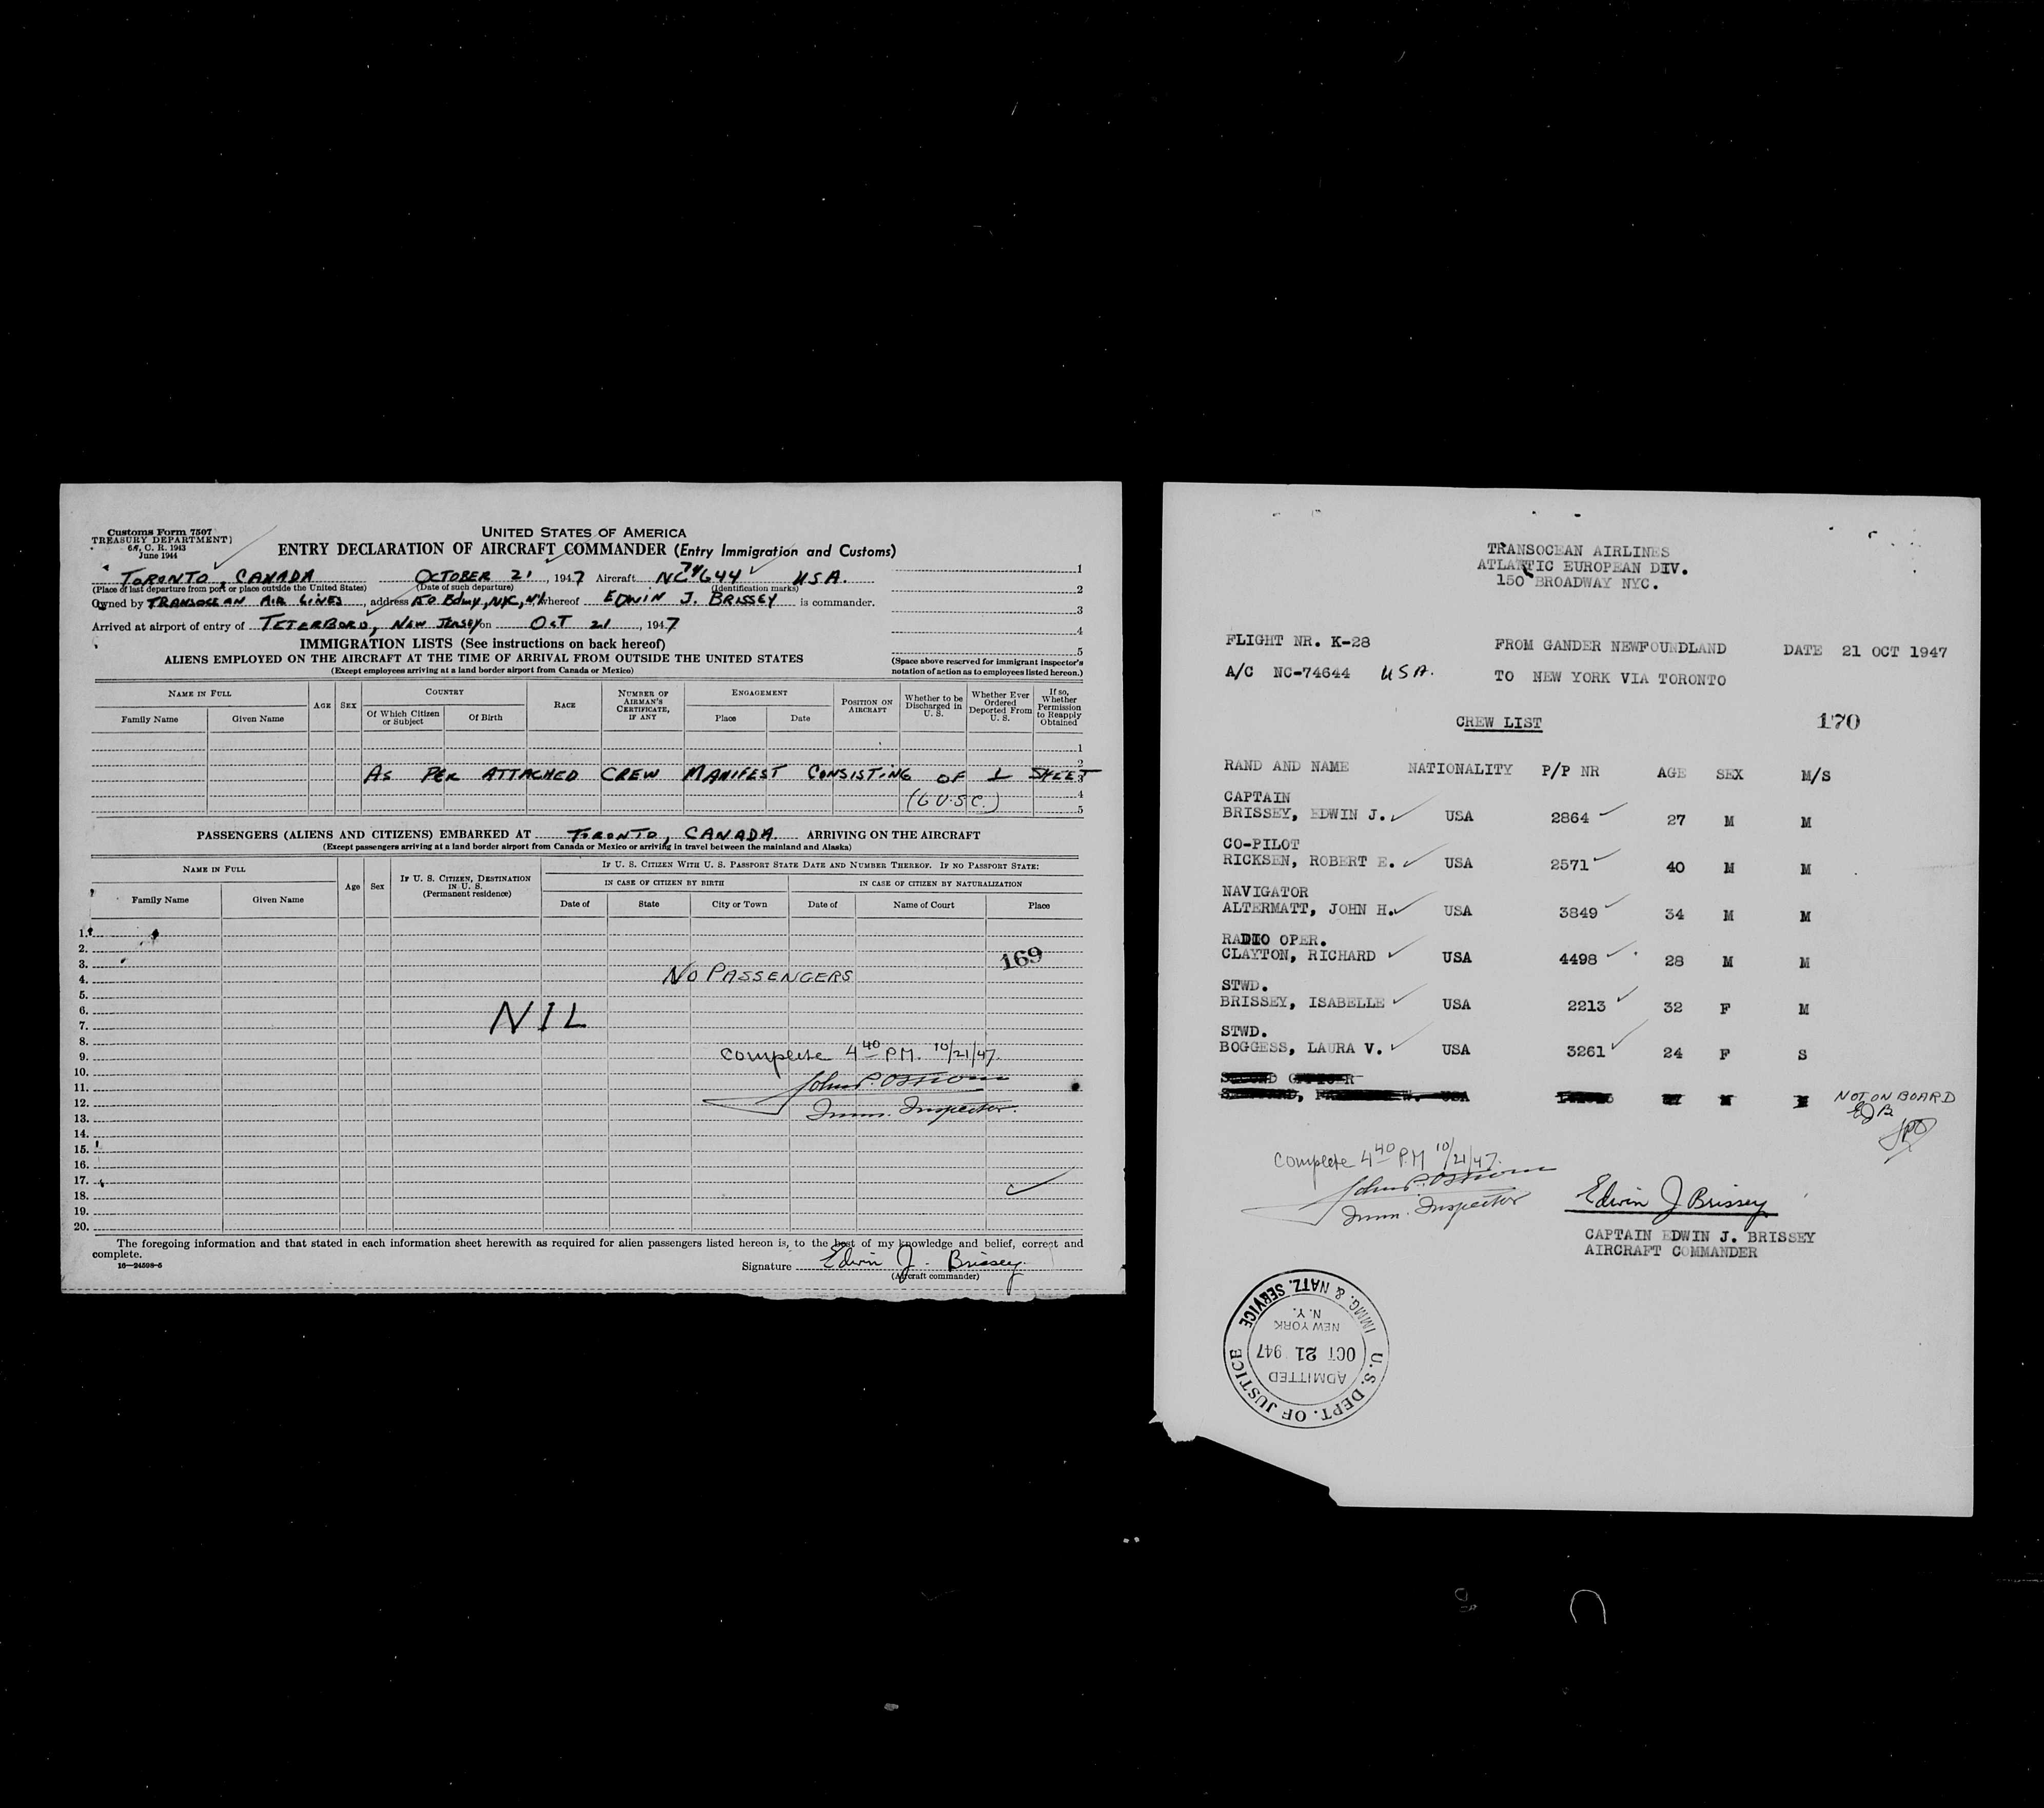 Customs Form 7507
TREASURY DEPARTMENT
C. R. 1943
June 1944
UNITED STATES OF AMERICA
ENTRY DECLARATION OF AIRCRAFT COMMANDER (Entry Immigration and Customs)
TORONTO, CANADA OCTOBER 21, 1947 Aircraft NC 74644 USA.
(Place of last departure from port or place outside the United States) (Date of such departure) (Identification marks)
Owned by TRANSOCEAN AIR LINES, address whereof EDWIN J. BRISSEY is commander.
Arrived at airport of entry of TETERBORO, NEW JERSEY on OCT 21, 1947
1
2
3
4
5
(Space above reserved for immigrant inspector's notation of action as to employees listed hereon.)
IMMIGRATION LISTS (See instructions on back hereof)
ALIENS EMPLOYED ON THE AIRCRAFT AT THE TIME OF ARRIVAL FROM OUTSIDE THE UNITED STATES
(Except employees arriving at a land border airport from Canada or Mexico)
NAME IN FULL
Family Name Given Name
AGE SEX
COUNTRY
Of Which Citizen or Subject Of Birth
RACE
NUMBER OF AIRMAN'S CERTIFICATE, IF ANY
ENGAGEMENT
Place Date
POSITION ON AIRCRAFT
Whether to be Discharged in U. S.
Whether Ever Ordered Deported From U. S.
If so, Whether Permission to Reapply Obtained
1
2
AS PER ATTACHED CREW MANIFEST CONSISTING OF 1 SHEET 3
(6 U.S.C.) 4
5
PASSENGERS (ALIENS AND CITIZENS) EMBARKED AT TORONTO, CANADA ARRIVING ON THE AIRCRAFT
(Except passengers arriving at a land border airport from Canada or Mexico or arriving in travel between the mainland and Alaska)
NAME IN FULL
Family Name Given Name
Age Sex
IF U. S. CITIZEN, DESTINATION IN U. S.
(Permanent residence)
IF U. S. CITIZEN WITH U. S. PASSPORT STATE DATE AND NUMBER THEREOF. IF NO PASSPORT STATE:
IN CASE OF CITIZEN BY BIRTH IN CASE OF CITIZEN BY NATURALIZATION
Date of State City or Town Date of Name of Court Place
1.
2.
3. 169
4. NO PASSENGERS
5.
6.
7. NIL
8.
9. Complete 4 40 P.M. 10/21/47.
10.
11. John P.
12.
13. Imm. Inspector.
14.
15.
16.
17.
18.
19.
20.
The foregoing information and that stated in each information sheet herewith as required for alien passengers listed hereon is, to the best of my knowledge and belief, correct and
complete.
16—24598-5
Signature Edwin J. Brissey
(Aircraft commander)
TRANSOCEAN AIRLINES
ATLANTIC EUROPEAN DIV.
150 BROADWAY NYC.
FLIGHT NR. K-28 FROM GANDER NEWFOUNDLAND DATE 21 OCT 1947
A/C NC-74644 USA. TO NEW YORK VIA TORONTO
CREW LIST 170
RAND AND NAME NATIONALITY P/P NR AGE SEX M/S
CAPTAIN
BRISSEY, EDWIN J. USA 2864 27 M M
CO-PILOT
RICKSEN, ROBERT E. USA 2571 40 M M
NAVIGATOR
ALTERMATT, JOHN H. USA 3849 34 M M
RADIO OPER.
CLAYTON, RICHARD USA 4498 28 M M
STWD.
BRISSEY, ISABELLE USA 2213 32 F M
STWD.
BOGGESS, LAURA V. USA 3261 24 F S
NOT ON BOARD
EJB
JPO
Complete 4 40 P.M 10/21/47.
John P.
Imm. Inspector
Edwin J Brissey
CAPTAIN EDWIN J. BRISSEY
AIRCRAFT COMMANDER
U. S. DEPT. OF JUSTICE
IMMG. & NATZ. SERVICE
ADMITTED
OCT 21 947
NEW YORK
N.Y.